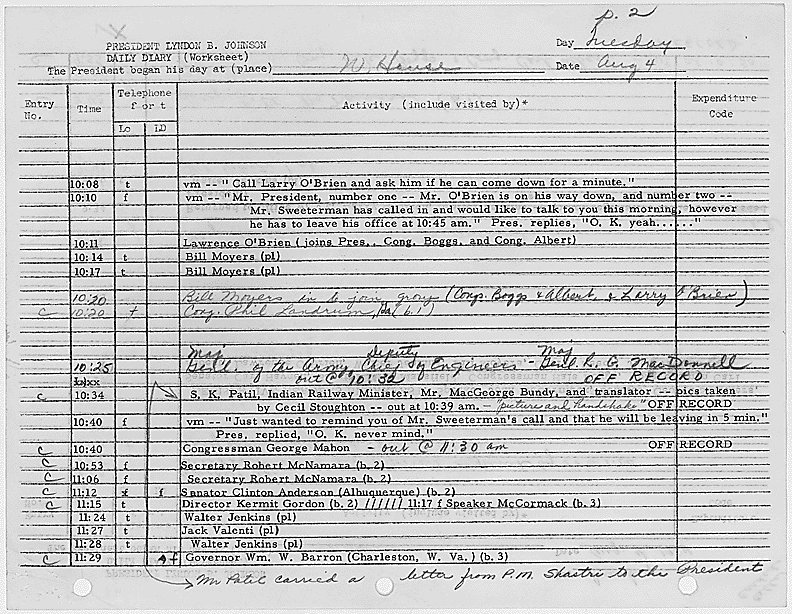 p. 2
PRESIDENT LYNDON B. JOHNSON
DAILY DIARY (Worksheet)
Day Tuesday
The President began his day at (place) W. House
Date Aug 4
Entry No. Time Telephone f or t Activity (include visited by)* Expenditure Code
Lo LD
10:08 t vm -- " Call Larry O'Brien and ask him if he can come down for a minute."
10:10 f vm -- "Mr. President, number one -- Mr. O'Brien is on his way down, and number two --
Mr. Sweeterman has called in and would like to talk to you this morning, however
he has to leave his office at 10:45 am." Pres. replies, "O. K. yeah......"
10:11 Lawrence O'Brien ( joins Pres., Cong. Boggs. and Cong. Albert)
10:14 t Bill Moyers (pl)
10:17 t Bill Moyers (pl)
10:20 Bill Moyers in to join group (Congs. Boggs & Albert & Larry O'Brien)
c 10:20 t Cong. Phil Landrum, Ga (b. 1)
Maj Deputy Maj
10:25 Genl. of the Army, Chief of Engineers - Genl. R. G. MacDonnell
out @ 10:32 OFF RECORD
c 10:34 S. K. Patil, Indian Railway Minister, Mr. MacGeorge Bundy, and translator -- pics taken
by Cecil Stoughton -- out at 10:39 am. - "picture and handshake" OFF RECORD
10:40 f vm -- "Just wanted to remind you of Mr. Sweeterman's call and that he will be leaving in 5 min."
Pres. replied, "O. K. never mind."
c 10:40 Congressman George Mahon - out @ 11:30 am OFF RECORD
c 10:53 f Secretary Robert McNamara (b. 2)
c 11:06 f Secretary Robert McNamara (b. 2)
c 11:12 f Senator Clinton Anderson (Albuquerque) (b. 2)
c 11:15 t Director Kermit Gordon (b. 2) ////// 11:17 f Speaker McCormack (b. 3)
11:24 t Walter Jenkins (pl)
11:27 t Jack Valenti (pl)
11:28 t Walter Jenkins (pl)
c 11:29 f Governor Wm. W. Barron (Charleston, W. Va. ) (b. 3)
Mr Patil carried a letter from P.M. Shastri to the President